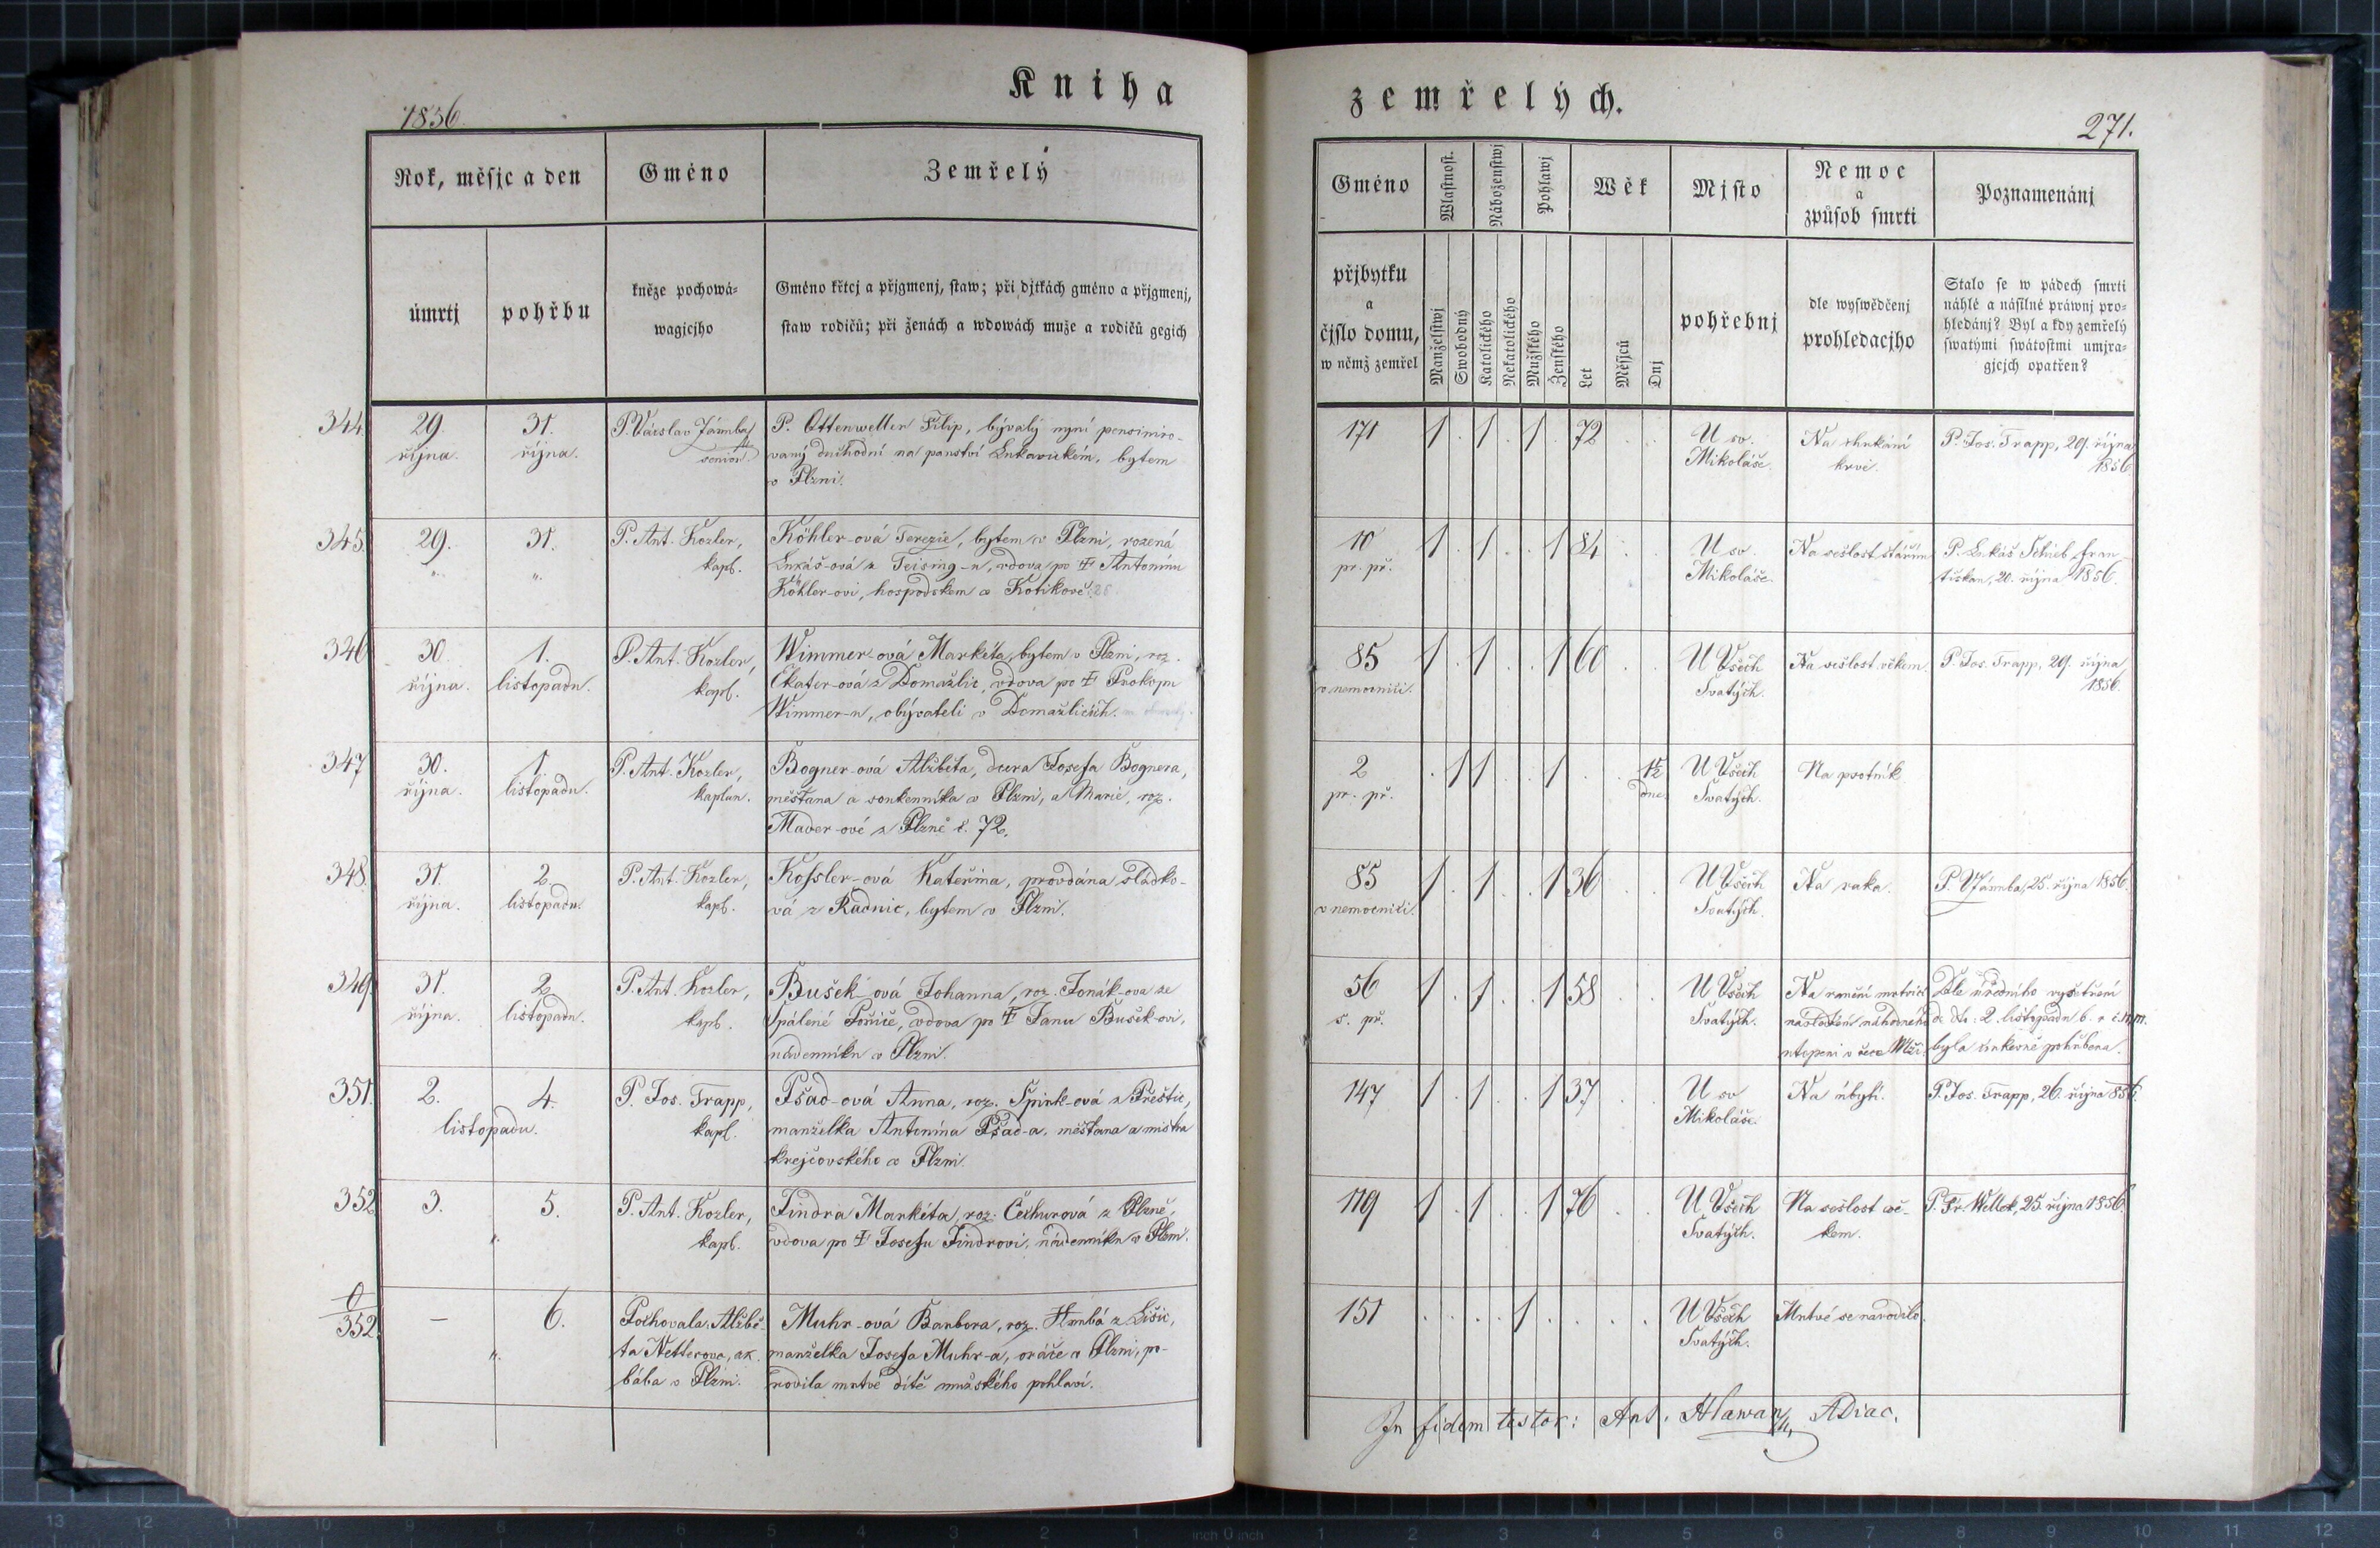 Kniha zemřelých.
1856
271.
Rok, měsjc a den
Gméno
Zemřelý
úmrtj
pohřbu
kněze pochowá-
wagjcjho
Gméno křtcj a přjgmenj, staw; při djtkách gméno a přjgmenj,
staw rodičů; při ženách a wdowách muže a rodičů gegich
Gméno
přjbytku
a
čjslo domu,
w němž zemřel
Wlastnost.
Manželstwj
Swobodný
Náboženstwj
Katolického
Nekatolického
Pohlawj
Mužského
Ženského
Wěk
Let
Měsjců
Dnj
Mjsto
pohřebnj
Nemoc
a
způsob smrti
dle wyswědčenj
prohledacjho
Poznamenánj
Stalo se w pádech smrti
náhlé a násilné práwnj pro-
hledánj? Byl a kdy zemřelý
swatými swátostmi umjra-
gjcjch opatřen?
344. 29. října. 31. října.
P. Václav Jármba, senior.
P. Ottenweller Filip, bývalý nyní pensimiro-
vaný důchodní na panství Lukavickém, bytem
v Plzni.
171 1 . 1 . 1 . 72 . .
U sv. Mikoláše.
Na krve.
P. Jos. Trapp, 29. října 1856
345. 29. " 31. "
P. Ant. Kozler, kapl.
Köhler-ová Terezie, bytem v Plzni, rozená
Lukáš-ová z Teising-u, vdova po † Antonínu
Köhler-ovi, hospodském v Kotikově
10 pr. př. 1 . 1 . . 1 84 . .
U sv. Mikoláše.
Na sešlost stářím
P. Lukáš Schieb, fran-
tiškan, 20. října 1856.
346 30. října. 1. listopadu.
P. Ant. Kozler, kapl.
Wimmer-ová Markéta, bytem v Plzni, roz.
Čkater-ová z Domažlic, vdova po † Prokopu
Wimmer-u, obývateli v Domažlicích.
85 v nemocnici. 1 . 1 . . 1 60 . .
U Všech Svatých.
Na sešlost věkem.
P. Jos. Trapp, 29. října 1856.
347 30. října. 1. listopadu.
P. Ant. Kozler, kaplan.
Bogner-ová Alžběta, dcera Josefa Bognera,
měšťana a soukenníka v Plzni, a Marie, roz.
Mader-ové z Plzně č. 72.
2 pr. př. . 1 1 . . 1 . . 1/2 dne.
U Všech Svatých.
Na psotník
348. 31. října. 2. listopadu.
P. Ant. Kozler, kapl.
Kossler-ová Kateřina, provdána sládko-
vá z Radnic, bytem v Plzni.
85 v nemocnici. 1 . 1 . . 1 36 . .
U Všech Svatých.
Na raka.
P. V. Jármba, 25. října 1856.
349. 31. října. 2. listopadu.
P. Ant. Kozler, kapl.
Bušek-ová Johanna, roz. Jonák-ova ze
Spálené Poříčě, vdova po † Janu Bušek-ovi,
nádenníku v Plzni.
56 s. př. 1 . 1 . . 1 58 . .
U Všech Svatých.
Na ranění mrtvicí
následkem náhodného
utopení v řece Mži.
Dle úředního vyšetření
dto: 2. listopadu
byla církevně pohřbena.
351. 2. 4. listopadu.
P. Jos. Trapp, kapl.
Pšad-ová Anna, roz. Spirk-ová z Přeštic,
manželka Antonína Pšad-a, měšťana a mistra
krejčovského v Plzni.
147 1 . 1 . . 1 37 . .
U sv Mikoláše.
Na úbytí.
P. Jos. Trapp, 26. října 856.
352 3. 5. "
P. Ant. Kozler, kapl.
Jindra Markéta, roz. Čechurová z Plzně,
vdova po † Josefu Jindrovi, nádenníku v Plzni.
119 1 . 1 . . 1 76 . .
U Všech Svatých.
Na sešlost vě-
kem.
P. Fr. Wellek, 25. října 1856.
0/352 — 6. "
Pochovala Alžbě-
ta Netterova, ak.
bába v Plzni.
Muhr-ová Barbora, roz. z Lišic,
manželka Josefa Muhr-a, oráče v Plzni, po-
rodila mrtvé dítě mužského pohlaví.
151 . . . . 1 . . . .
U Všech Svatých.
Mrtvé se narodilo.
In fidem testor: Ant. Hlawan, ADiac.